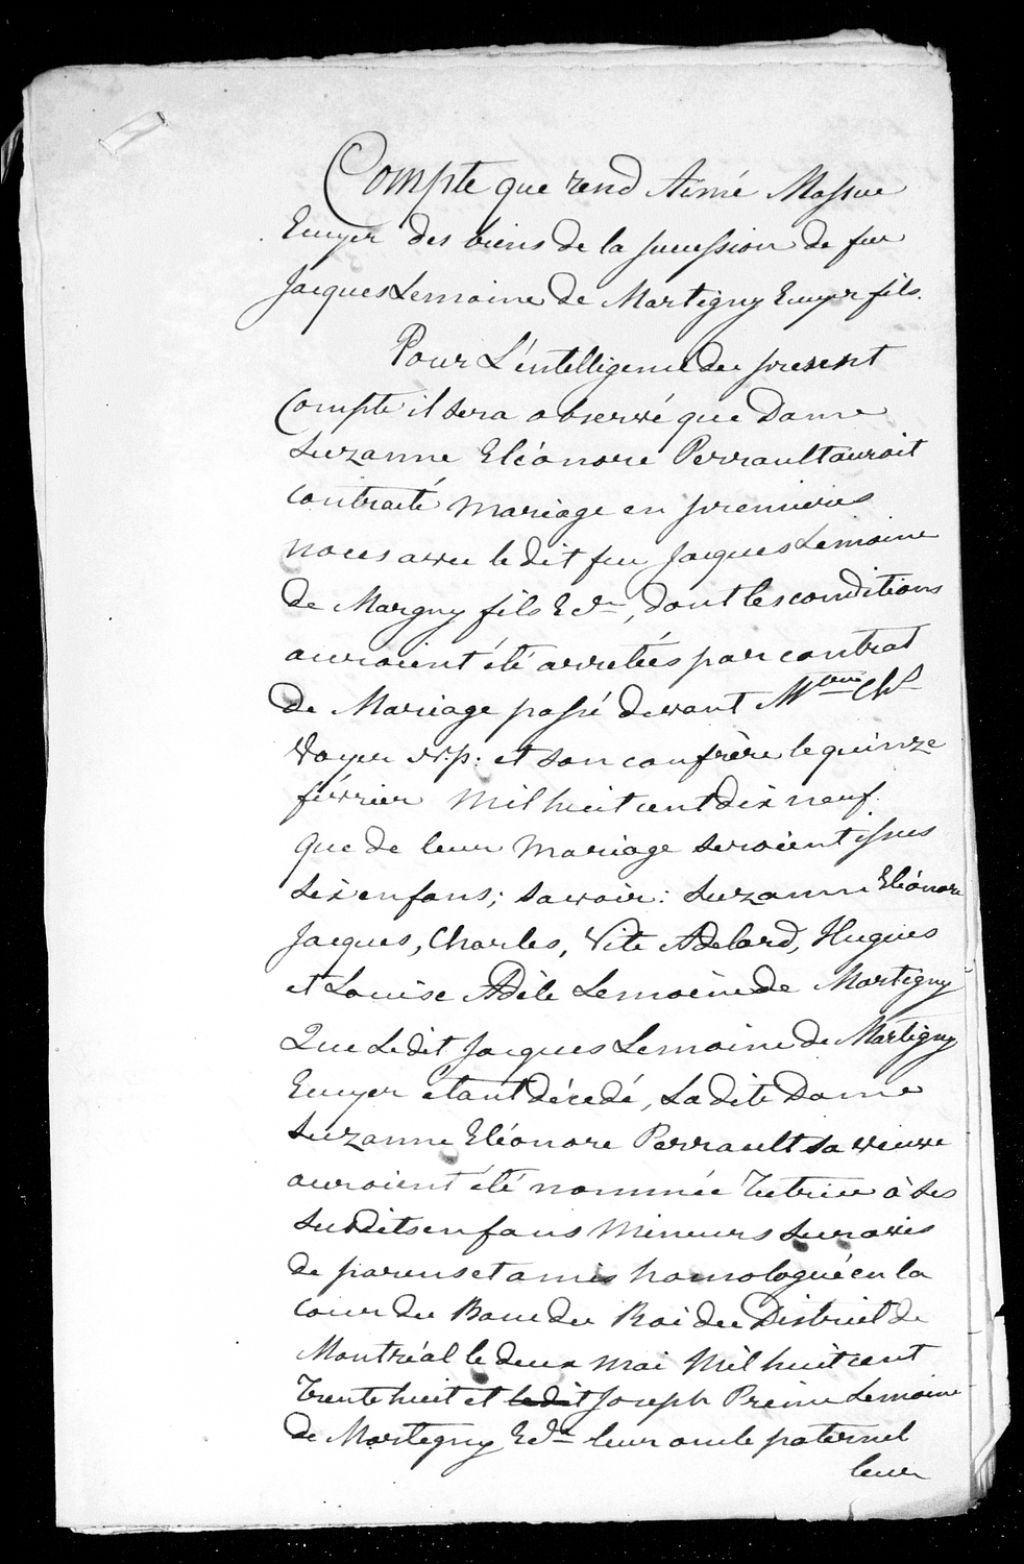 Compte que rend Aimé Massue
Ecuyer des biens de la succession de feu
Jacques Lemoine de Martigny Ecuyer fils.
Pour L'intelligence du present
Compte il sera observé que Dame
Suzanne Eléonore Perrault auroit
contracté Mariage en premieres
noces avec le dit feu Jacques Lemoine
de Margny fils Ecr, dont les conditions
auroient été arretées par contrat
de Mariage passé devant Mtre Chs
Voyer N.p: et son confrère le quinze
février Mil huit cent dix neuf.
que de leur Mariage seroient issus
six enfans; savoir: Suzanne Eléonore
Jacques, Charles, Vite Adelard, Hugues
et Louise Adèle Lemoine de Martigny
Que Ledit Jacques Lemoine de Martigny
Ecuyer étant décedé, Ladite Dame
Suzanne Eléonore Perrault sa veuve
auroient été nommée Tutrice à ses
susdits enfans Mineurs sur avis
de parens et amis homologué en la
Cour du Banc du Roi du District de
Montréal le deux Mai Mil huit cent
Trente huit et ledit Joseph Prime Lemoine
de Martegny Ecr leur oncle paternel
leur